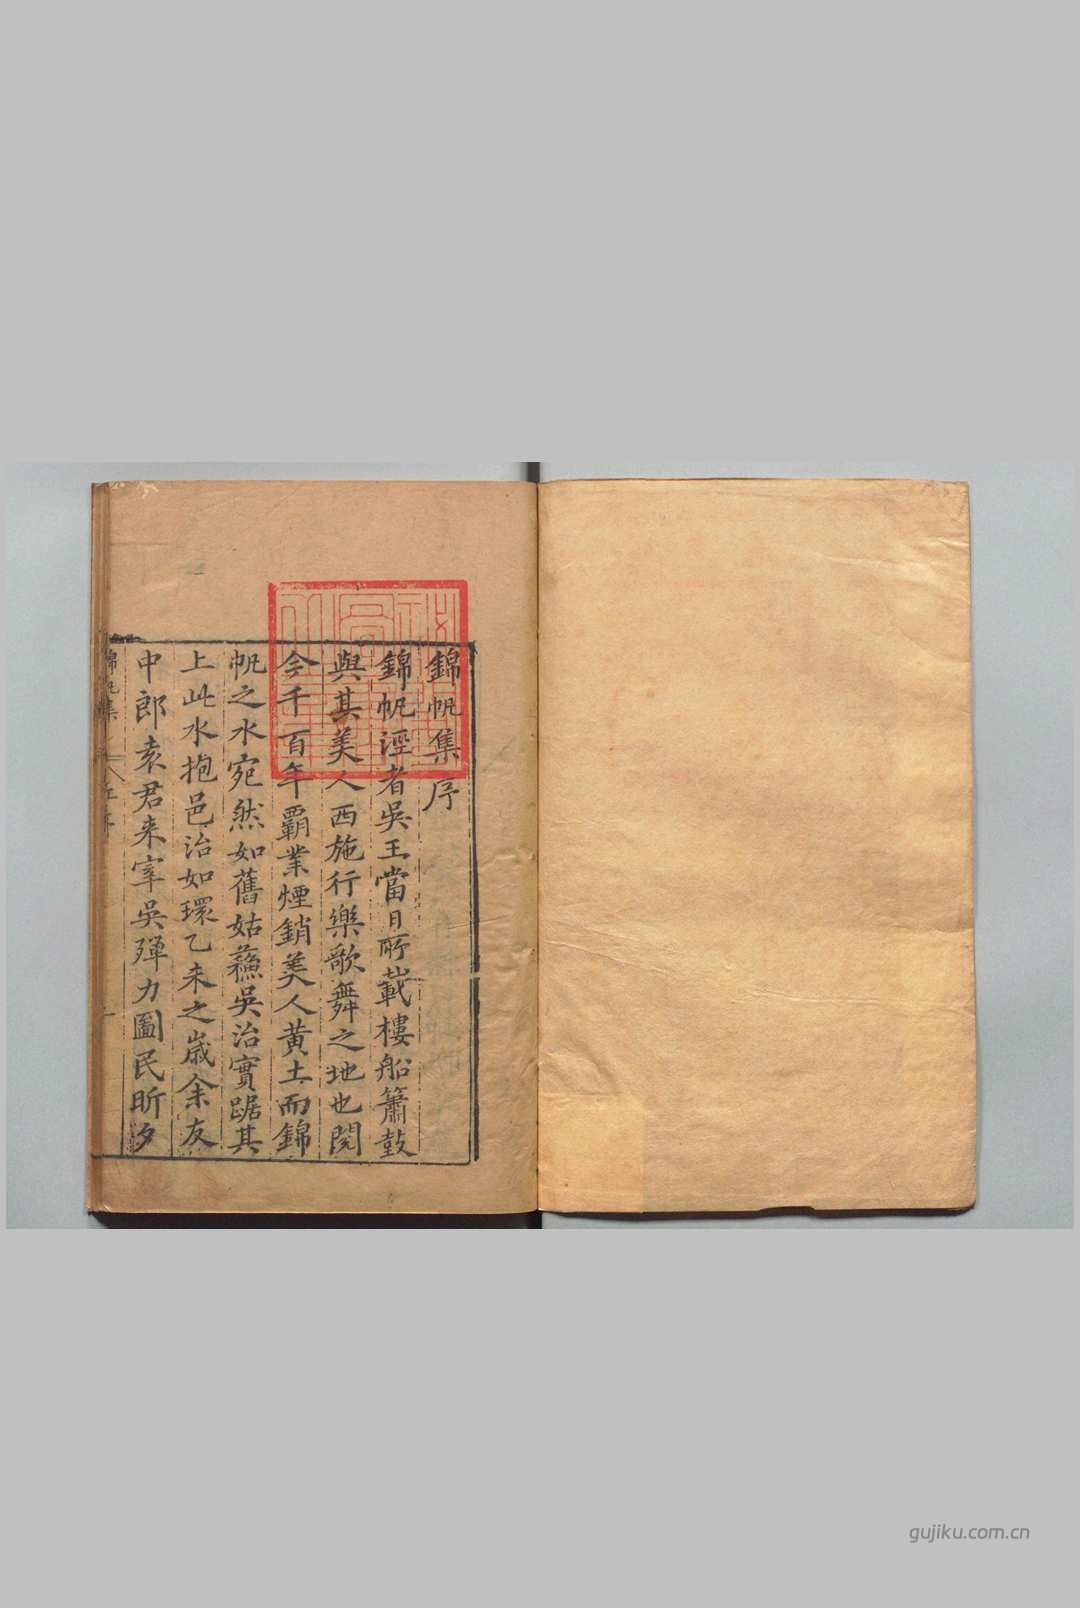 錦帆集序
錦帆涇者吳王當日所載樓船簫鼓
與其美人西施行樂歌舞之地也閱
今千百年霸業煙銷美人黃土而錦
帆之水宛然如舊姑蘓吳治實踞其
上此水抱邑治如環乙未之歲余友
中郎袁君来宰吳殫力圖民昕夕
錦帆集
gujiku.com.cn